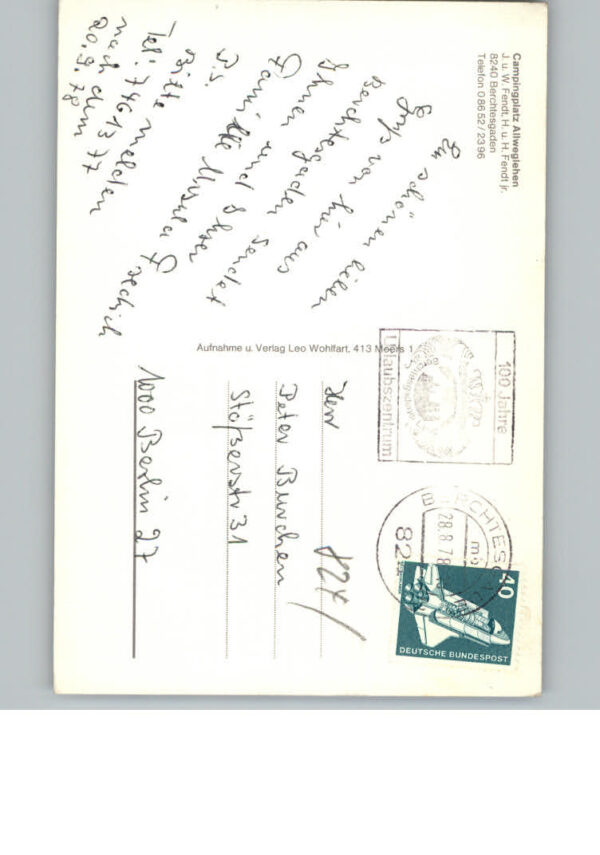 Campingplatz Allweglehen
J. u. W. Fendt, H. u. H. Fendt jr.
8240 Berchtesgaden
Telefon 0 86 52 / 23 96
Ein schönen lieben
Gruß von hier aus
Berchtesgaden sendet
Ihnen und Ihrer
Familie Ursula
P.s.
Bitte melden
Tel: 746 13 77
nach dem
20.9.78
Aufnahme u. Verlag Leo Wohlfart, 413 Moers 1
100 Jahre
Urlaubszentrum
BERCHTESGADEN
28.8.78
mb
824
40
DEUTSCHE BUNDESPOST
824/
Herr
Peter Burchen
Stößerstr 31
1000 Berlin 27